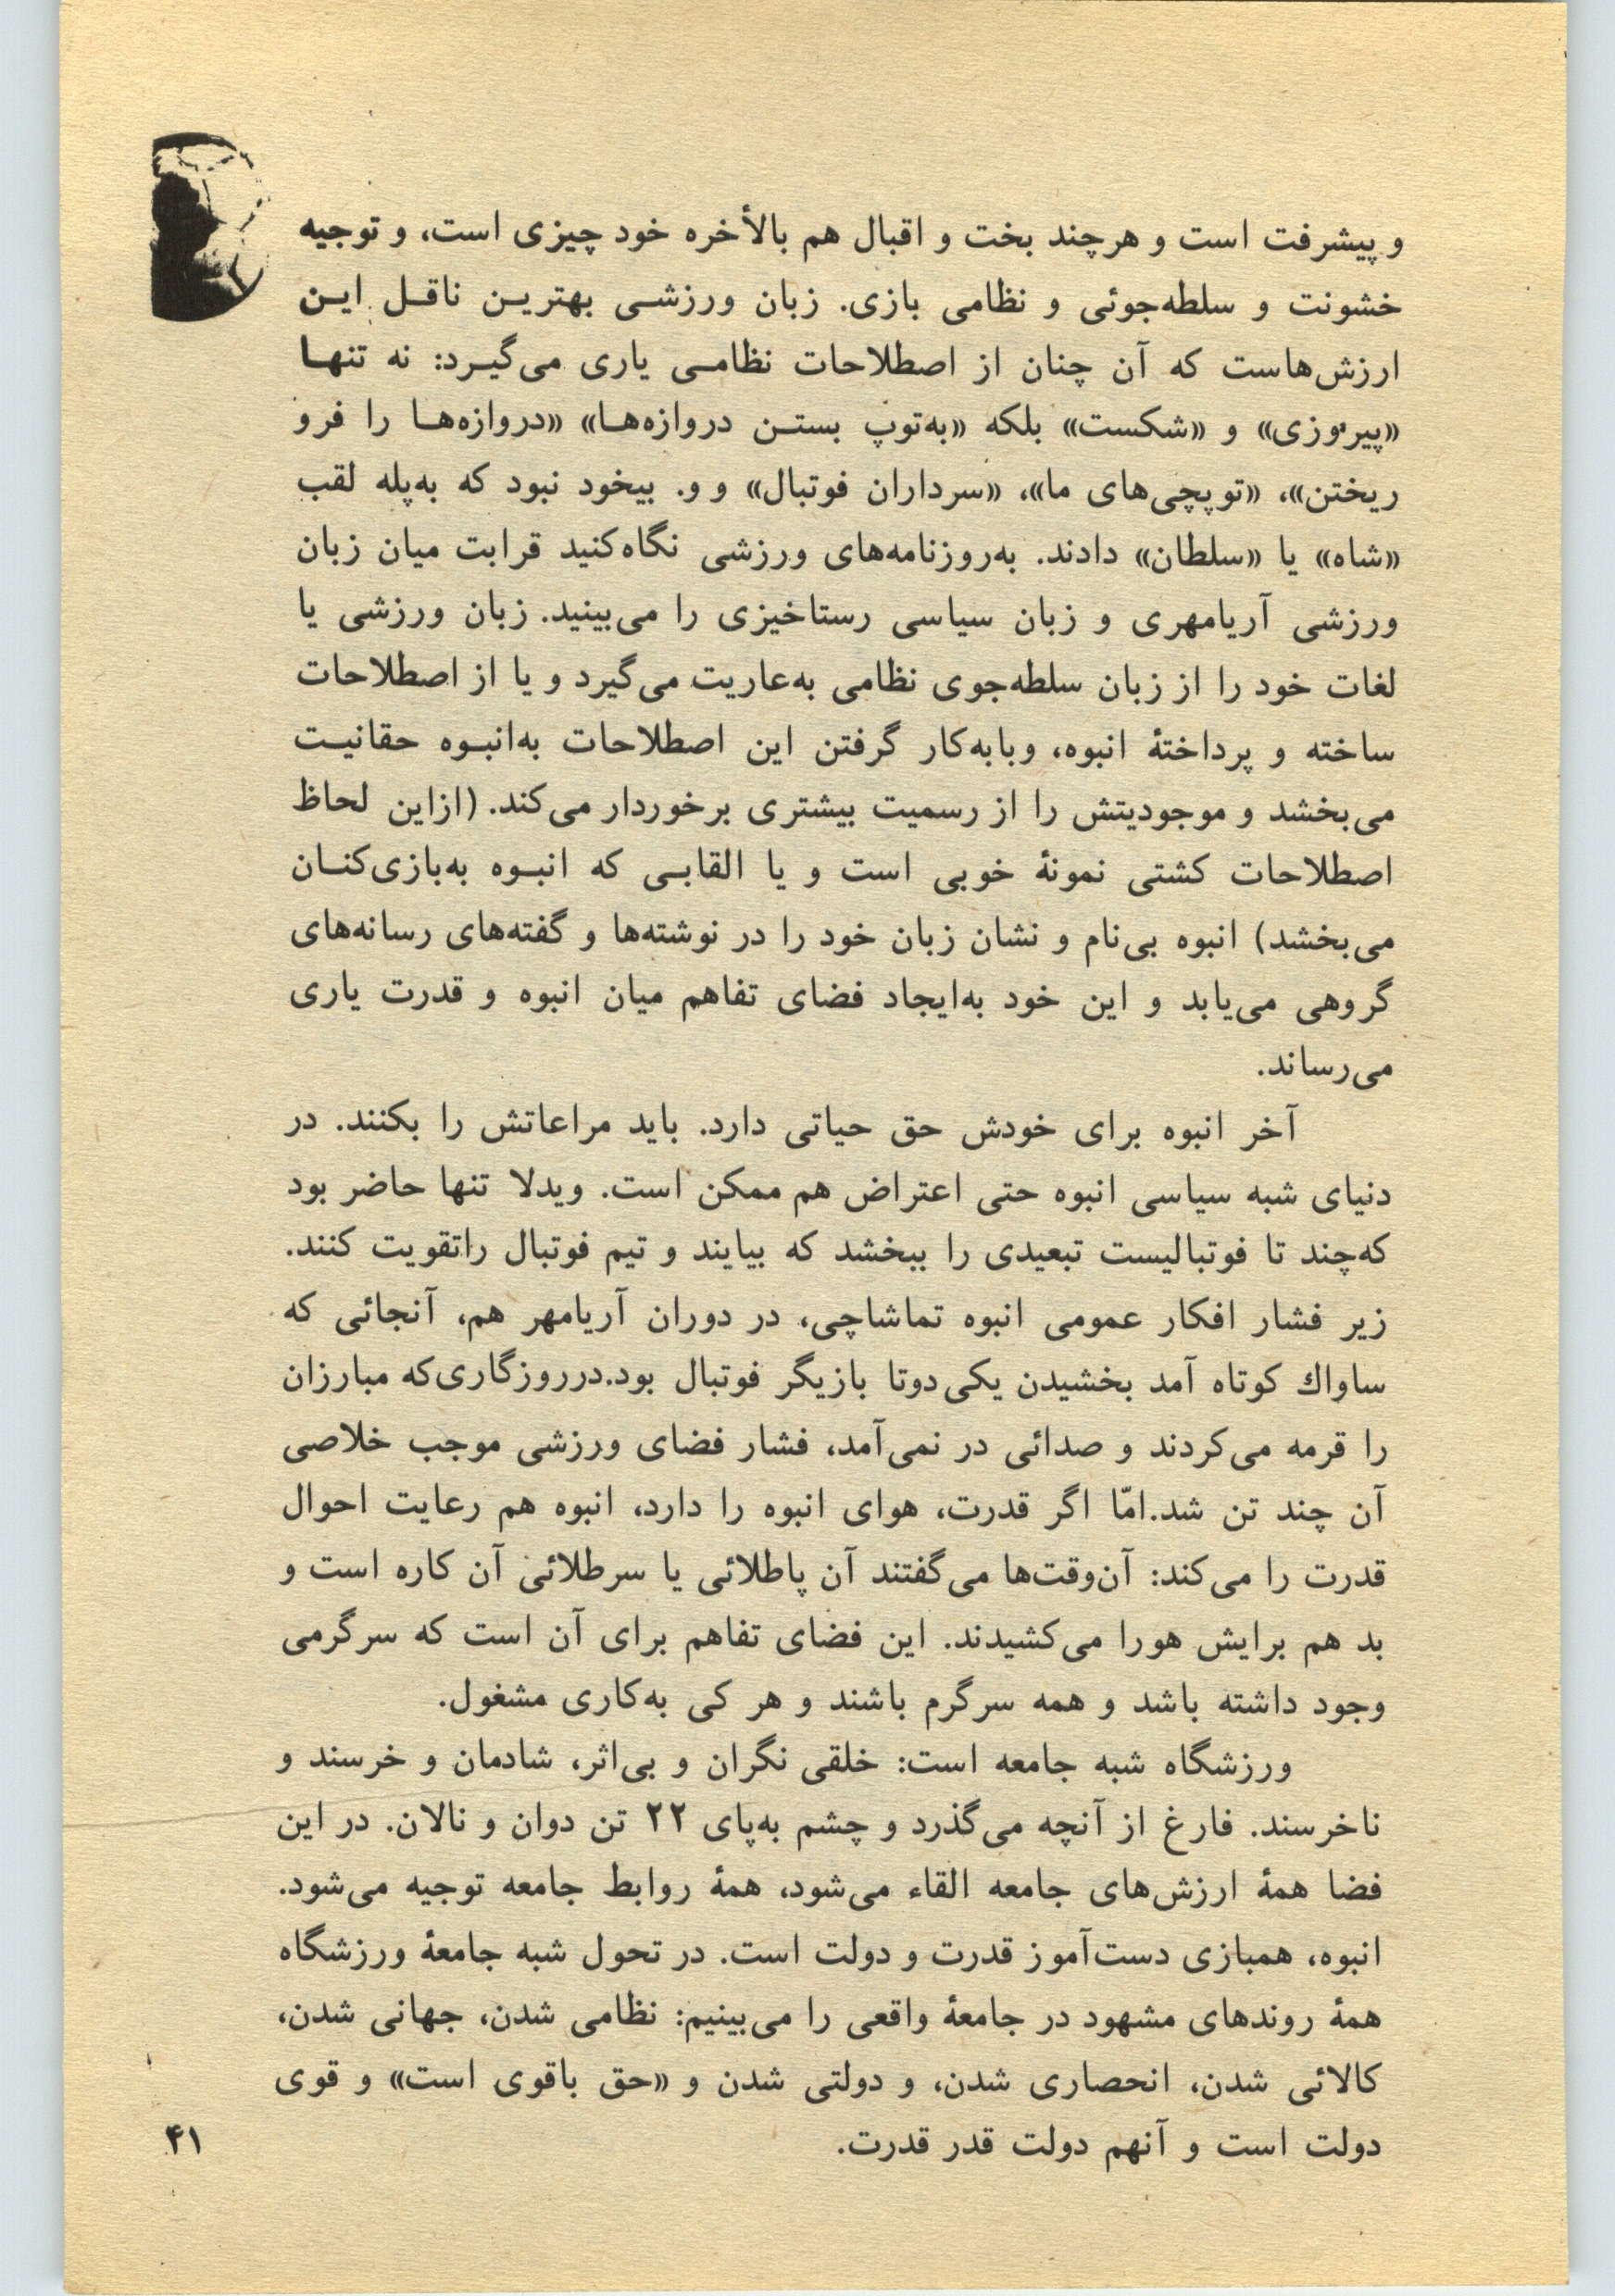 و پیشرفت است و هرچند بخت و اقبال هم بالأخره خود چیزی است، و توجیه
خشونت و سلطه‌جوئی و نظامی بازی. زبان ورزشـی بهتریـن ناقـل ایـن
ارزش‌هاست که آن چنان از اصطلاحات نظامـی یاری می‌گیـرد: نه تنهـا
«پیروزی» و «شکست» بلکه «به‌توپ بستـن دروازه‌هـا» «دروازه‌هـا را فرو
ریختن»، «توپچی‌های ما»، «سرداران فوتبال» و و. بیخود نبود که به‌پله لقب
«شاه» یا «سلطان» دادند. به‌روزنامه‌های ورزشی نگاه‌کنید قرابت میان زبان
ورزشی آریامهری و زبان سیاسی رستاخیزی را می‌بینید. زبان ورزشی یا
لغات خود را از زبان سلطه‌جوی نظامی به‌عاریت می‌گیرد و یا از اصطلاحات
ساخته و پرداختهٔ انبوه، وبابه‌کار گرفتن این اصطلاحات به‌انبـوه حقانیـت
می‌بخشد و موجودیتش را از رسمیت بیشتری برخوردار می‌کند. (ازاین لحاظ
اصطلاحات کشتی نمونهٔ خوبی است و یا القابـی که انبـوه به‌بازی‌کنـان
می‌بخشد) انبوه بی‌نام و نشان زبان خود را در نوشته‌ها و گفته‌های رسانه‌های
گروهی می‌یابد و این خود به‌ایجاد فضای تفاهم میان انبوه و قدرت یاری
می‌رساند.
آخر انبوه برای خودش حق حیاتی دارد. باید مراعاتش را بکنند. در
دنیای شبه سیاسی انبوه حتی اعتراض هم ممکن است. ویدلا تنها حاضر بود
که‌چند تا فوتبالیست تبعیدی را ببخشد که بیایند و تیم فوتبال راتقویت کنند.
زیر فشار افکار عمومی انبوه تماشاچی، در دوران آریامهر هم، آنجائی که
ساواك کوتاه آمد بخشیدن یکی‌دوتا بازیگر فوتبال بود.درروزگاری‌که مبارزان
را قرمه می‌کردند و صدائی در نمی‌آمد، فشار فضای ورزشی موجب خلاصی
آن چند تن شد.امّا اگر قدرت، هوای انبوه را دارد، انبوه هم رعایت احوال
قدرت را می‌کند: آن‌وقت‌ها می‌گفتند آن پاطلائی یا سرطلائی آن کاره است و
بد هم برایش هورا می‌کشیدند. این فضای تفاهم برای آن است که سرگرمی
وجود داشته باشد و همه سرگرم باشند و هر کی به‌کاری مشغول.
ورزشگاه شبه جامعه است: خلقی نگران و بی‌اثر، شادمان و خرسند و
ناخرسند. فارغ از آنچه می‌گذرد و چشم به‌پای ۲۲ تن دوان و نالان. در این
فضا همهٔ ارزش‌های جامعه القاء می‌شود، همهٔ روابط جامعه توجیه می‌شود.
انبوه، همبازی دست‌آموز قدرت و دولت است. در تحول شبه جامعهٔ ورزشگاه
همهٔ روندهای مشهود در جامعهٔ واقعی را می‌بینیم: نظامی شدن، جهانی شدن،
کالائی شدن، انحصاری شدن، و دولتی شدن و «حق باقوی است» و قوی
دولت است و آنهم دولت قدر قدرت.
۴۱